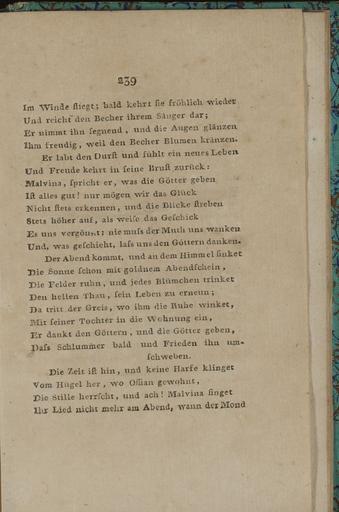 239
Im Winde fliegt; bald kehrt ſie fröhlich wieder
Und reicht den Becher ihrem Sänger dar;
Er nimmt ihn ſegnend, und die Augen glänzen
Ihm freudig, weil den Becher Blumen kränzen.
Er labt den Durſt und fühlt ein neues Leben
Und Freude kehrt in ſeine Bruſt zurück:
Malvina, ſpricht er, was die Götter geben
Iſt alles gut! nur mögen wir das Glück
Nicht ſtets erkennen, und die Blicke ſtreben
Stets höher auf, als weiſe das Geſchick
Es uns vergönnt; nie muſs der Muth uns wanken
Und, was geſchieht, laſs uns den Göttern danken.
Der Abend kommt, und an dem Himmel ſinket
Die Sonne ſchon mit goldnem Abendſchein,
Die Felder ruhn, und jedes Blümchen trinket
Den hellen Thau, ſein Leben zu erneun;
Da tritt der Greis, wo ihm die Ruhe winket,
Mit ſeiner Tochter in die Wohnung ein,
Er dankt den Göttern, und die Götter geben,
Daſs Schlummer bald und Frieden ihn um-
ſchweben.
Die Zeit iſt hin, und keine Harfe klinget
Vom Hügel her, wo Oſſian gewohnt,
Die Stille herrſcht, und ach! Malvina ſinget
Ihr Lied nicht mehr am Abend, wann der Mond